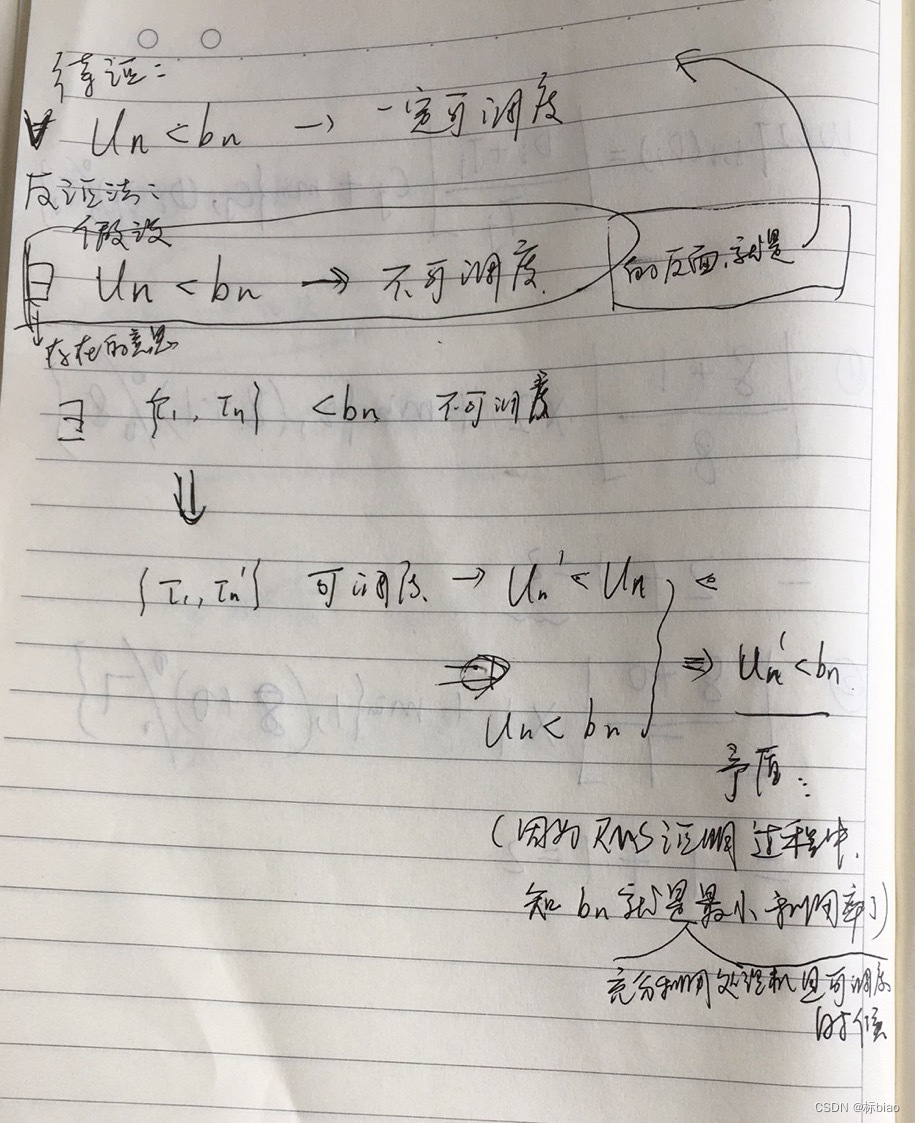 待证：
∀ Un < bn → 一定可调度
反证法：
假设
∃ Un < bn → 不可调度. 的反面，就是
存在的意思
∃ {τ1, τn} < bn 不可调度
⇓
{τ1, τn'} 可调度. → Un' < Un
⇒ Un' < bn.
Un < bn
矛盾：
(因为RMS证明过程中,
知 bn 就是最小利用率了)
充分利用处理机且可调度
时值
CSDN @标biao